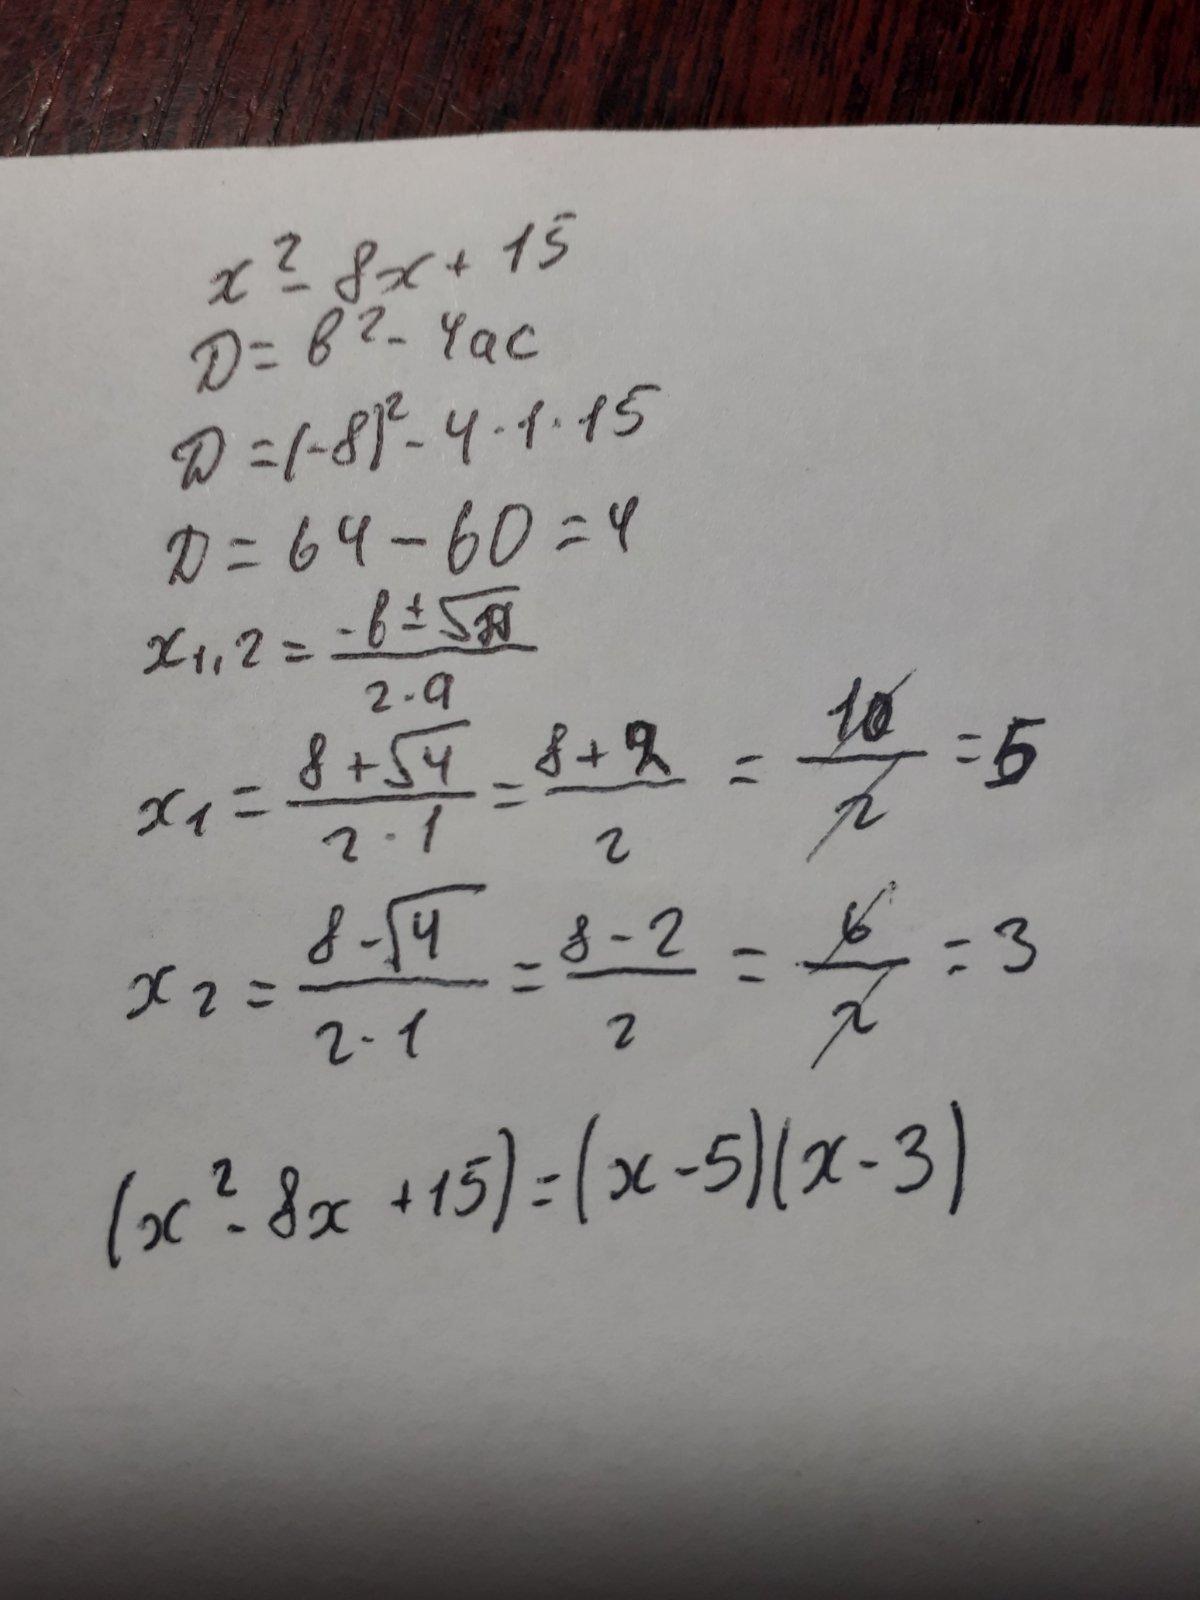 x² - 8x + 15
D = b² - 4ac
D = (-8)² - 4 · 1 · 15
D = 64 - 60 = 4
x₁,₂ = (-b ± √D) / (2 · a)
x₁ = (8 + √4) / (2 · 1) = (8 + 2) / 2 = 10 / 2 = 5
x₂ = (8 - √4) / (2 · 1) = (8 - 2) / 2 = 6 / 2 = 3
(x² - 8x + 15) = (x - 5)(x - 3)